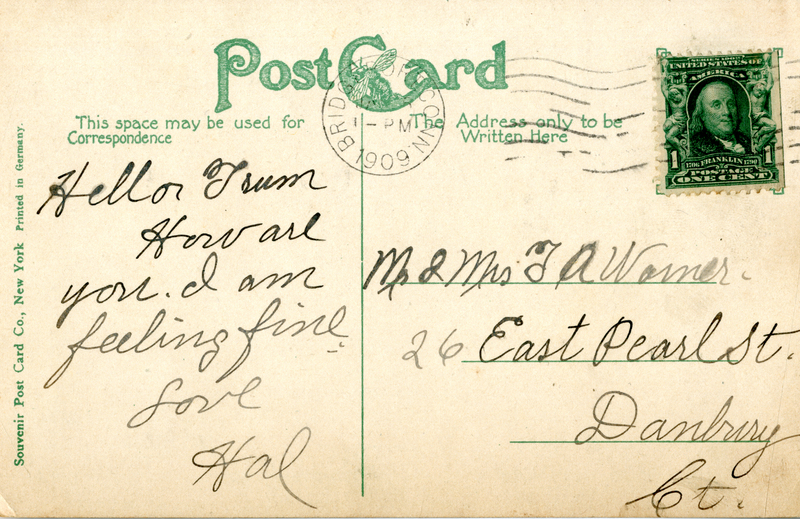 Post Card
BRIDGEPORT CONN.
1 - PM
1909
SERIES 1902
UNITED STATES OF
AMERICA
1 1706 FRANKLIN 1790 1
POSTAGE
ONE CENT
This space may be used for
Correspondence
The Address only to be
Written Here
Hello Frum
How are
you. I am
feeling fine.
Love
Hal
Mr & Mrs F A Warner.
26 East Pearl St.
Danbury
Ct.
Souvenir Post Card Co., New York Printed in Germany.